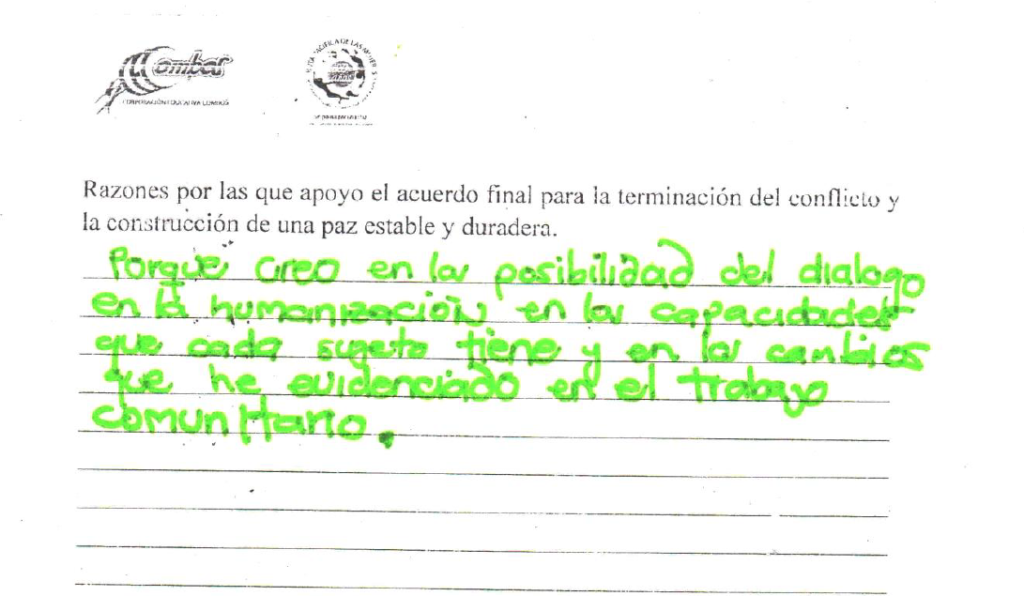 Combos
CORPORACIÓN EDUCATIVA COMBOS
RUTA PACÍFICA DE LAS MUJERES
Razones por las que apoyo el acuerdo final para la terminación del conflicto y
la construcción de una paz estable y duradera.
Porque creo en la posibilidad del dialogo
en la humanización en las capacidades
que cada sujeto tiene y en los cambios
que he evidenciado en el trabajo
comunitario.